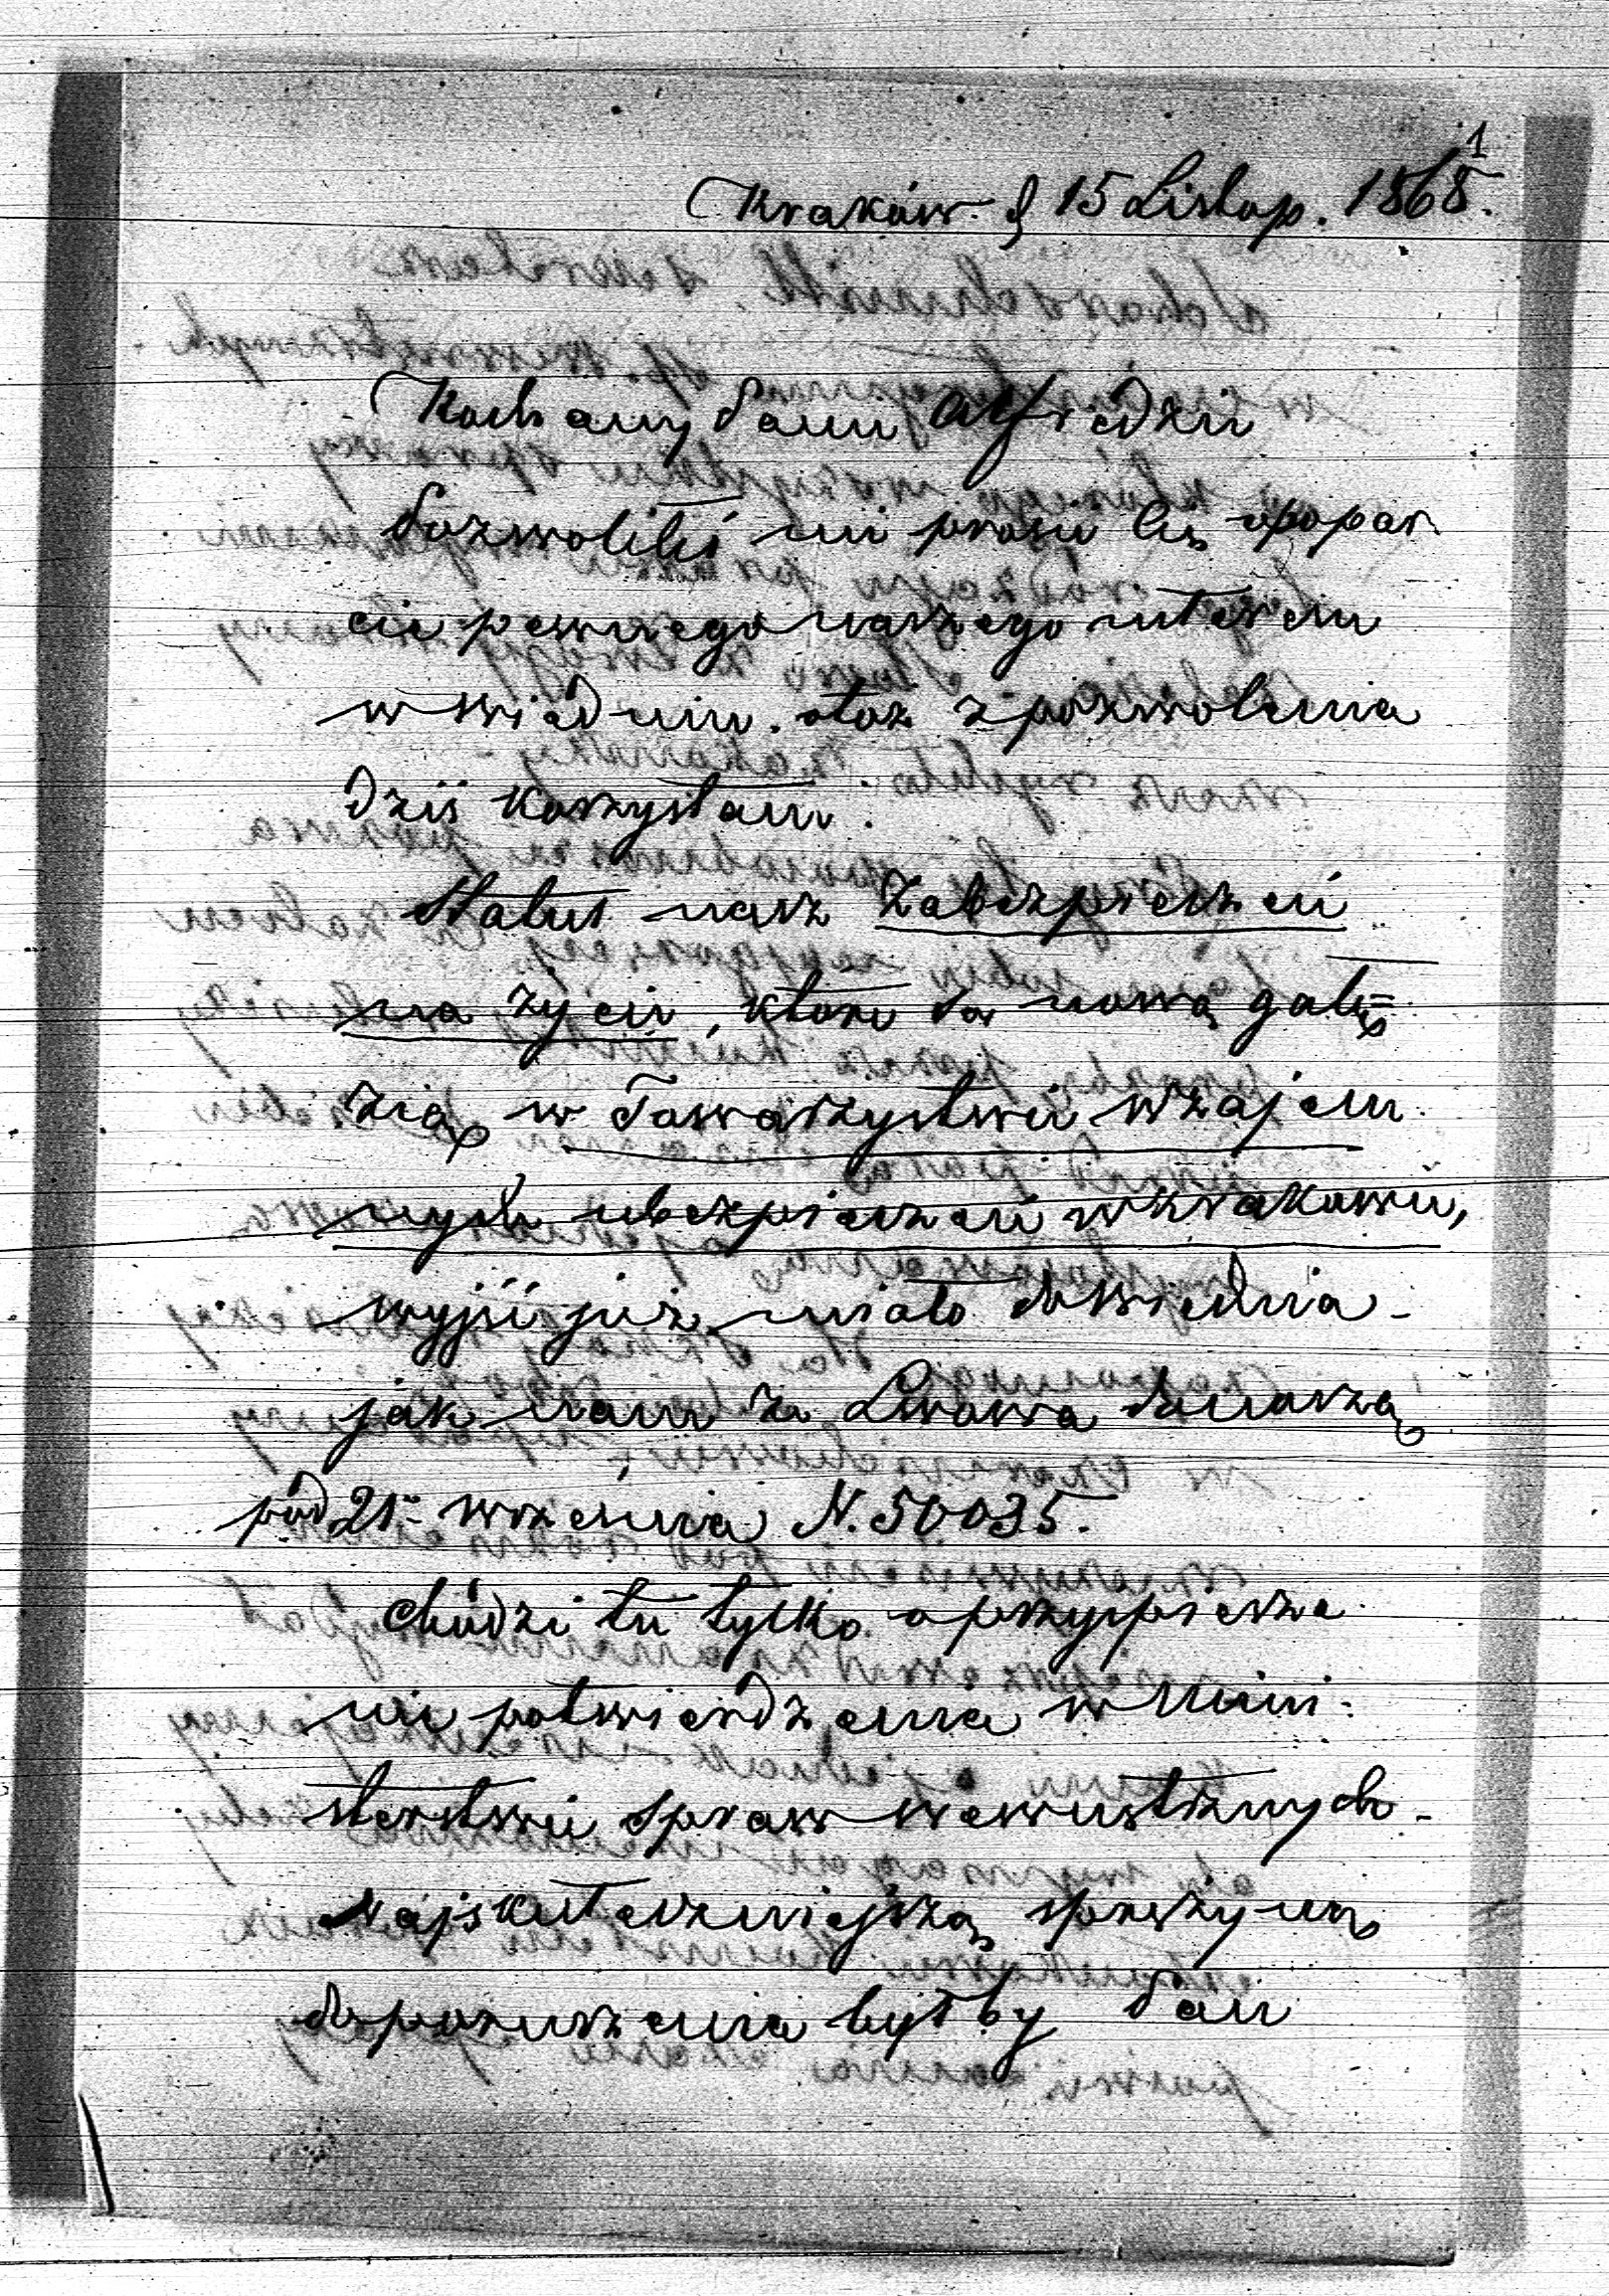 1
Kraków d 15 Listop. 1868.
Kochany Panie Alfredzie
Pozwoliłeś mi prosić Cię o popar
cie pewnego naszego interesu
w Wiedniu. otoż z pozwolenia
dziś korzystam.
Statut nasz Zabezpieczeń
na życie, które są nową gałę
zią w Towarzystwie wzajem
nych ubezpieczeń w Krakowie,
wyjść już miało do Wiednia -
jak nam ze Lwowa donoszą
pod 21. września N. 50035.
Chodzi tu tylko o przyspiesze
nie potwierdzenia w Mini-
sterstwie Spraw wewnętrznych -
Najskuteczniejszą sprężyną
do poruszenia byłby Pan